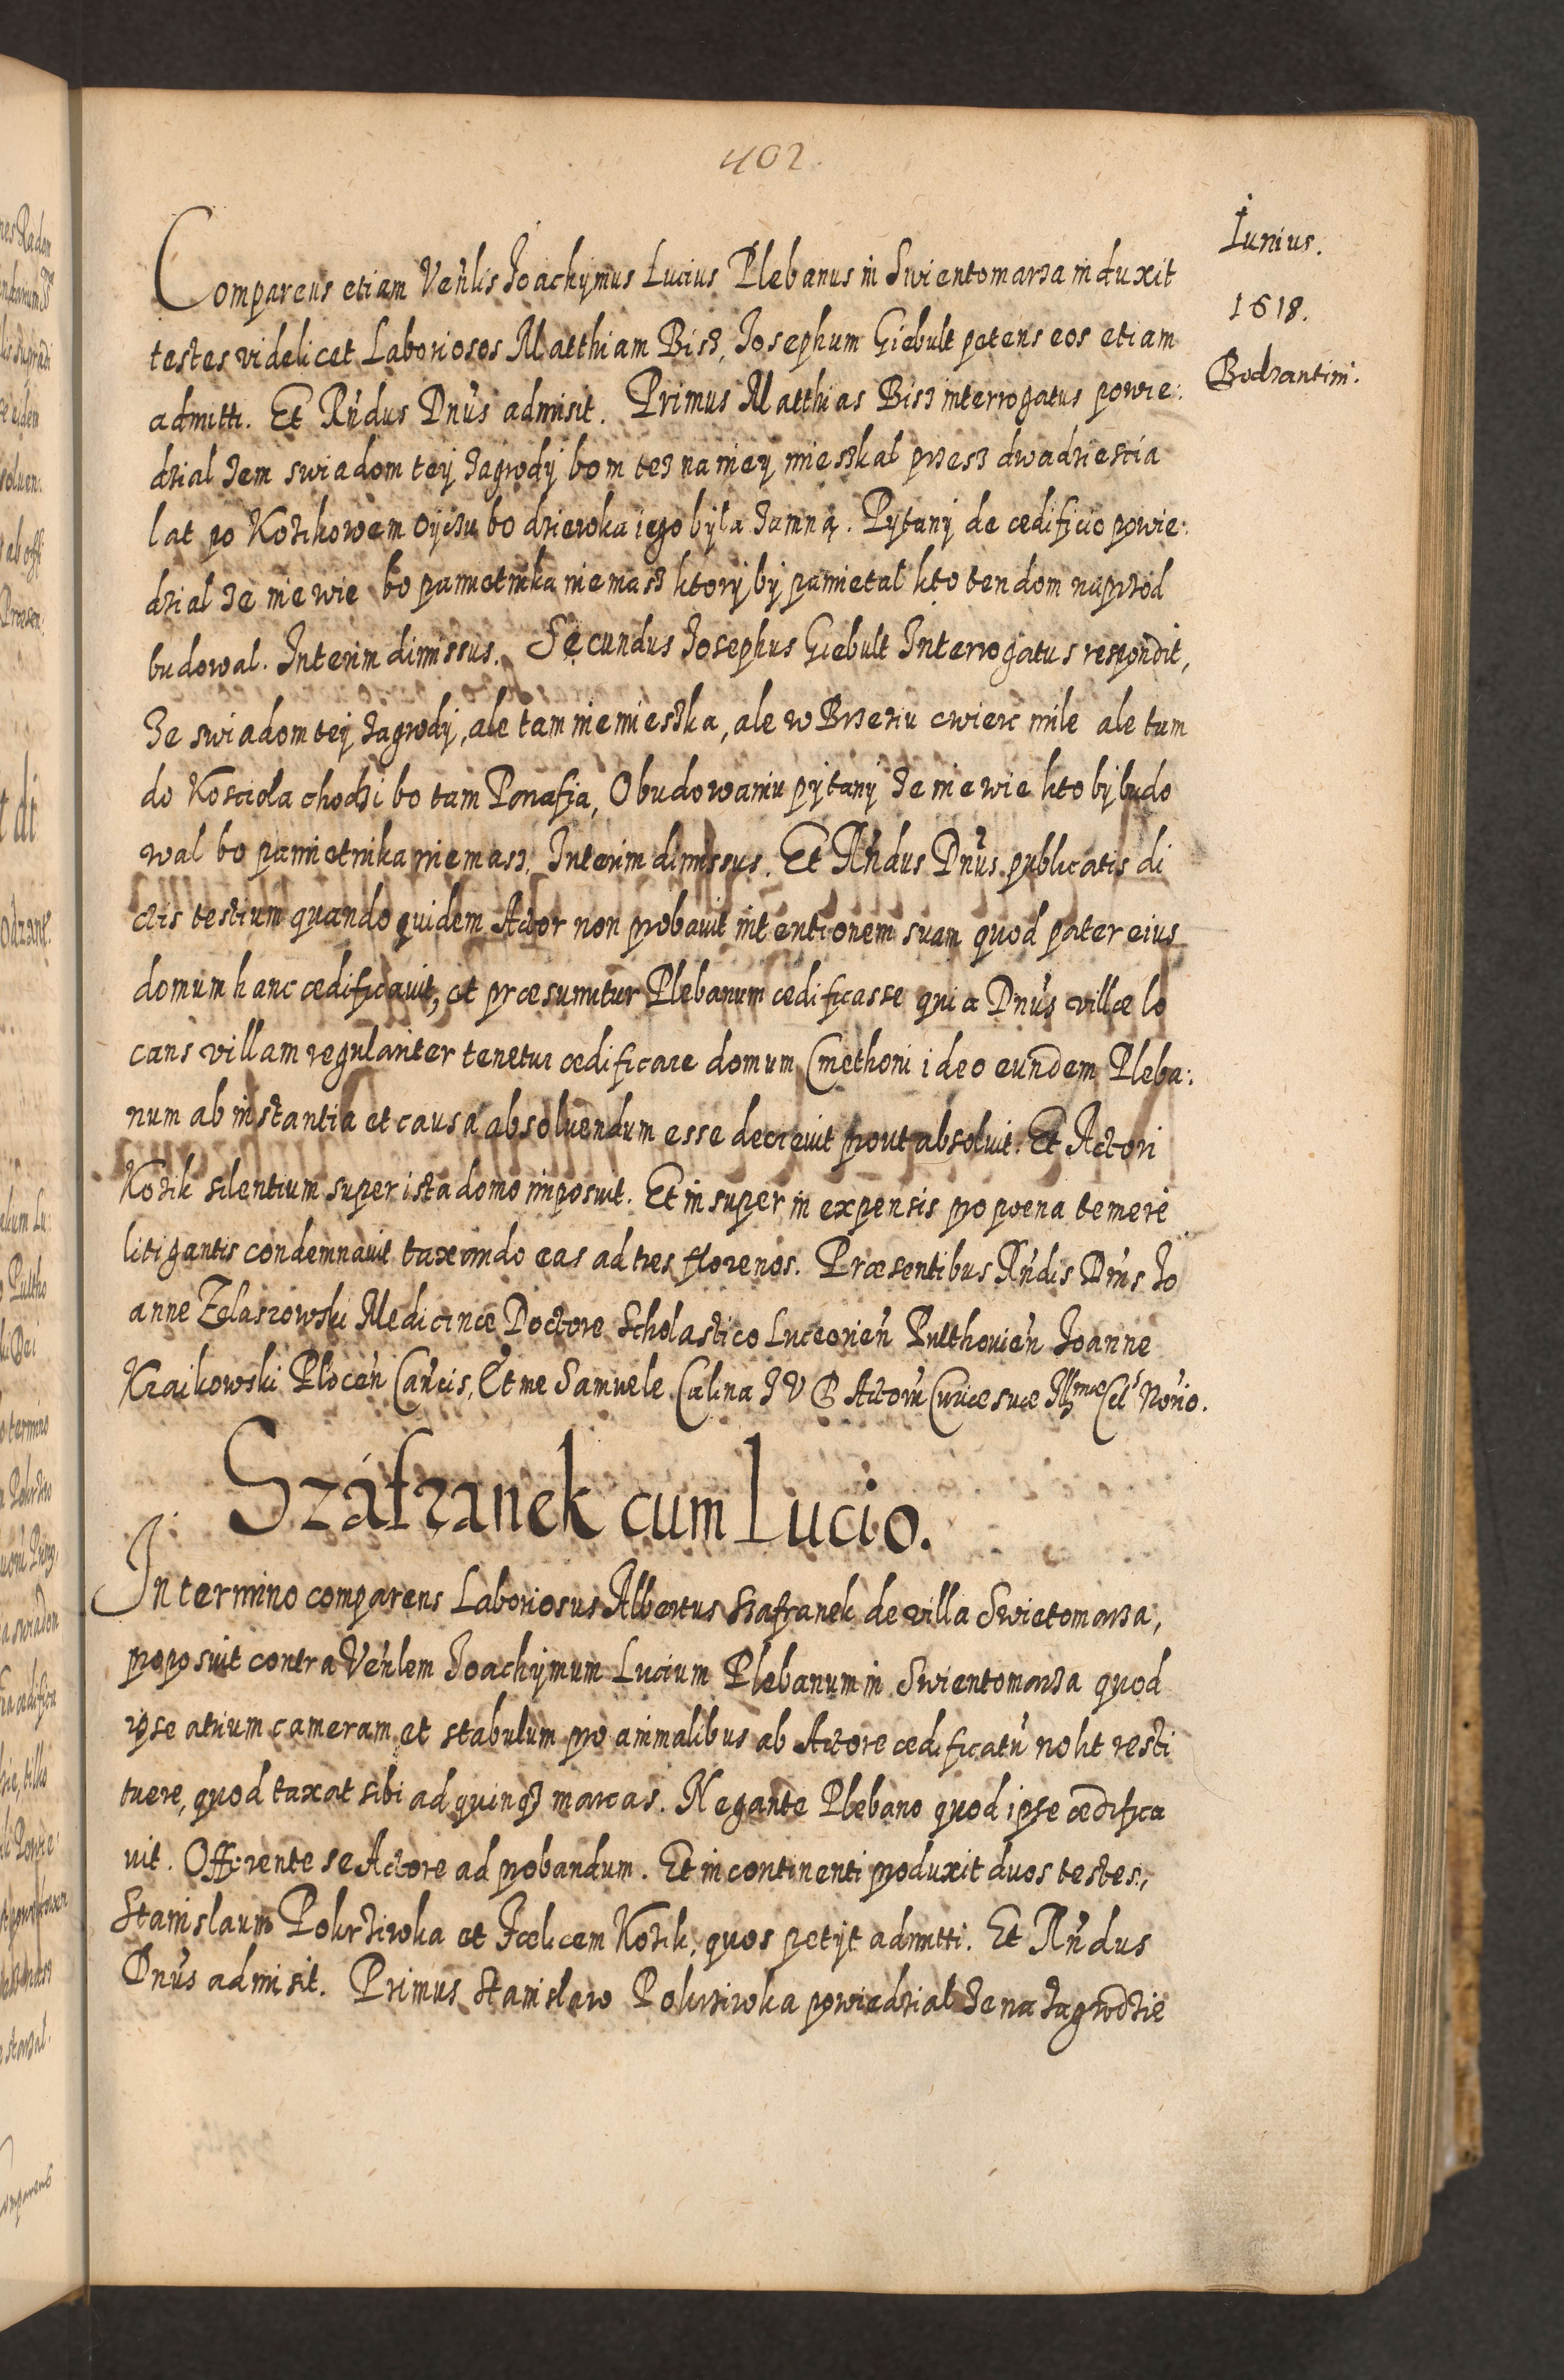 402.
Junius.
1618.
Bodzantini.
Comparens etiam Veñlis Joachymus Lucius Plebanus in Swientomarza induxit
testes videlicet Laboriosos Matthiam Bisz, Josephum Giebult petens eos etiam
admitti. Et Rńdus Dnús admisit. Primus Matthias Bisz interrogatus powie:
dzial zem swiadom tey zagrody bom tez na niey mieszkal przesz dwadziescia
lat po Kozikowem oyczu bo dziewka iego była zamną. Pytany de ædificio powie:
dzial ze nie wie bo pamietnika niemasz ktory by pamietal kto ten dom naprzod
budowal. Interim dimissus. Secundus Josephus Giebult Interrogatus respondit,
Ze swiadom tey zagrody, ale tam nie mieszka, ale w Brzeziu cwierc mile ale tam
do Kosciola chodzi bo tam Parafia, O budowaniu pytany ze nie wie kto by budo
wal bo pamietnika niemasz. Interim dimissus. Et Rńdus Dnús publicatis di
ctis testium quando quidem Actor non probavit intentionem suam quod pater eius
domum hanc ædificavit, et præsumitur Plebanum ædificasse quia Dnús villæ lo
cans villam regulariter tenetur ædificare domum Cmethoni ideo eundem Pleba:
num ab instantia et causa absoluendum esse decrevit prout absolvit. Et Actori
Kozik silentium super ista domo imposuit. Et insuper in expensis pro poena temere
litigantis condemnavit taxando eas ad tres florenos. Præsentibus Rńdis Dnis Jo
anne Zelaszowski Medicinæ Doctore Scholastico Luceorień Pulthovień Joanne
Kraikowski Ploceń Cańcis, Et me Samuele Calina J V D Actorú Curiæ suæ Illmæ Cels Norio.
Száfranek cum Lucio.
In termino comparens Laboriosus Albertus Szafranek de villa Swietomarza,
proposuit contra Veńlem Joachymum Lucium Plebanum in Swientomarza quod
ipse atrium cameram et stabulum pro animalibus ab Actore ædificatú nolit resti
tuere, quod taxat sibi ad quinqz marcas. Negante Plebano quod ipse ædifica
vit. Offerente se Actore ad probandum. Et in continenti produxit duos testes,
Stanislaum Pokrziwka et Fælicem Kozik, quos petijt admitti. Et Rńdus
Dnús admisit. Primus Stanislaw Pokrziwka powiedzial ze na zagrodzie